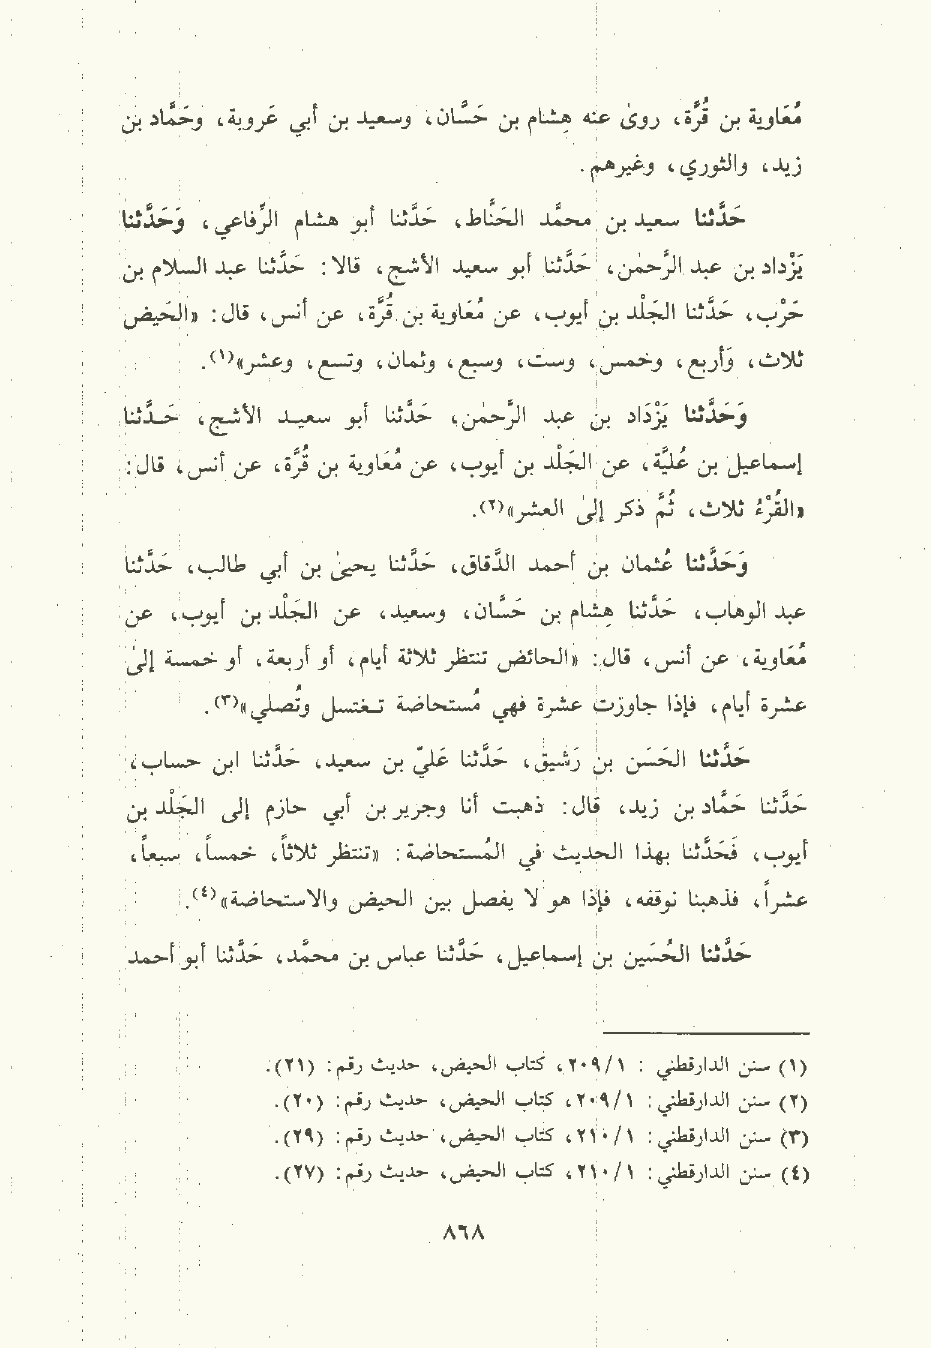 مُعَاوية بن قُرَّة، روىٰ عنه هِشام بن حَسَّان، وسعيد بن أبي عَروبة، وحَمَّاد بن
زيد، والثوري، وغيرهم.
حَدَّثنا سعيد بن محمَّد الحَنَّاط، حَدَّثنا أبو هشام الرِّفاعي، وَحَدَّثنا
يَزْداد بن عبد الرَّحمٰن، حَدَّثنا أبو سعيد الأشج، قالا: حَدَّثنا عبد السلام بن
حَرْب، حَدَّثنا الجَلْد بن أيوب، عن مُعَاوية بن قُرَّة، عن أنس، قال: «الحَيض
ثلاث، وَأربع، وخمس، وست، وسبع، وثمان، وتسع، وعشر»(١).
وَحَدَّثنا يَزْدَاد بن عبد الرَّحمٰن، حَدَّثنا أبو سعيد الأشج، حَدَّثنا
إسماعيل بن عُليَّة، عن الجَلْد بن أيوب، عن مُعَاوية بن قُرَّة، عن أنس، قال:
«القُرْءُ ثلاث، ثُمَّ ذكر إلىٰ العشر»(٢).
وَحَدَّثنا عُثمان بن أحمد الدَّقاق، حَدَّثنا يحيىٰ بن أبي طالب، حَدَّثنا
عبد الوهاب، حَدَّثنا هِشام بن حَسَّان، وسعيد، عن الجَلْد بن أيوب، عن
مُعَاوية، عن أنس، قال: «الحائض تنتظر ثلاثة أيام، أو أربعة، أو خمسة إلىٰ
عشرة أيام، فإذا جاوزت عشرة فهي مُستحاضة تـغتسل وتُصلي»(٣).
حَدَّثنا الحَسَن بن رَشيق، حَدَّثنا عَليّ بن سعيد، حَدَّثنا ابن حساب،
حَدَّثنا حَمَّاد بن زيد، قال: ذهبت أنا وجرير بن أبي حازم إلى الجَلْد بن
أيوب، فَحَدَّثنا بهذا الحديث في المُستحاضة: «تنتظر ثلاثاً، خمساً، سبعاً،
عشراً، فذهبنا نوقفه، فإذا هو لا يفصل بين الحيض والاستحاضة»(٤).
حَدَّثنا الحُسَين بن إسماعيل، حَدَّثنا عباس بن محمَّد، حَدَّثنا أبو أحمد
(١) سنن الدارقطني : ٢٠٩/١، كتاب الحيض، حديث رقم: (٢١).
(٢) سنن الدارقطني: ٢٠٩/١، كتاب الحيض، حديث رقم: (٢٠).
(٣) سنن الدارقطني: ٢١٠/١، كتاب الحيض، حديث رقم: (٢٩).
(٤) سنن الدارقطني: ٢١٠/١، كتاب الحيض، حديث رقم: (٢٧).
٨٦٨